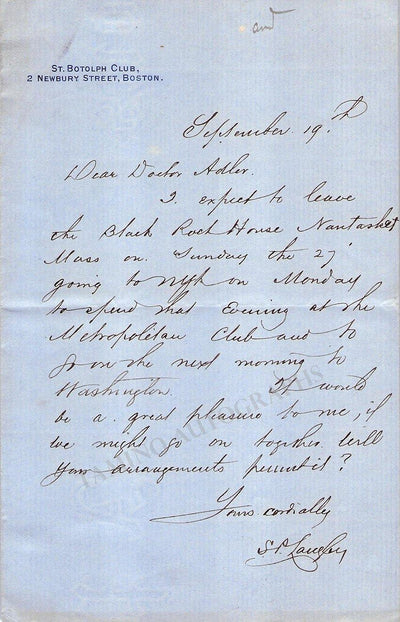 and
ST. BOTOLPH CLUB,
2 NEWBURY STREET, BOSTON.
September 19.th
Dear Doctor Adler.
I. expect to leave
the Black Rock House Nantasket
Mass on. Sunday the 27
going to N Yk on Monday
to spend that Evening at the
Metropolitan Club and to
go on the next morning to
Washington. It would
be a. great pleasure to me, if
we might go on together. Will
your arrangements permit it?
Yours cordially
S P. Langley
TAMINO AUTOGRAPHS